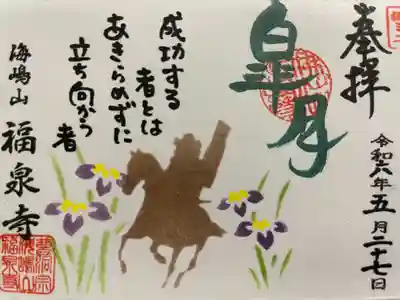 奉拝
令和六年五月二十七日
皐月
成功する
者とは
あきらめずに
立ち向かう
者
海嶋山
福泉寺